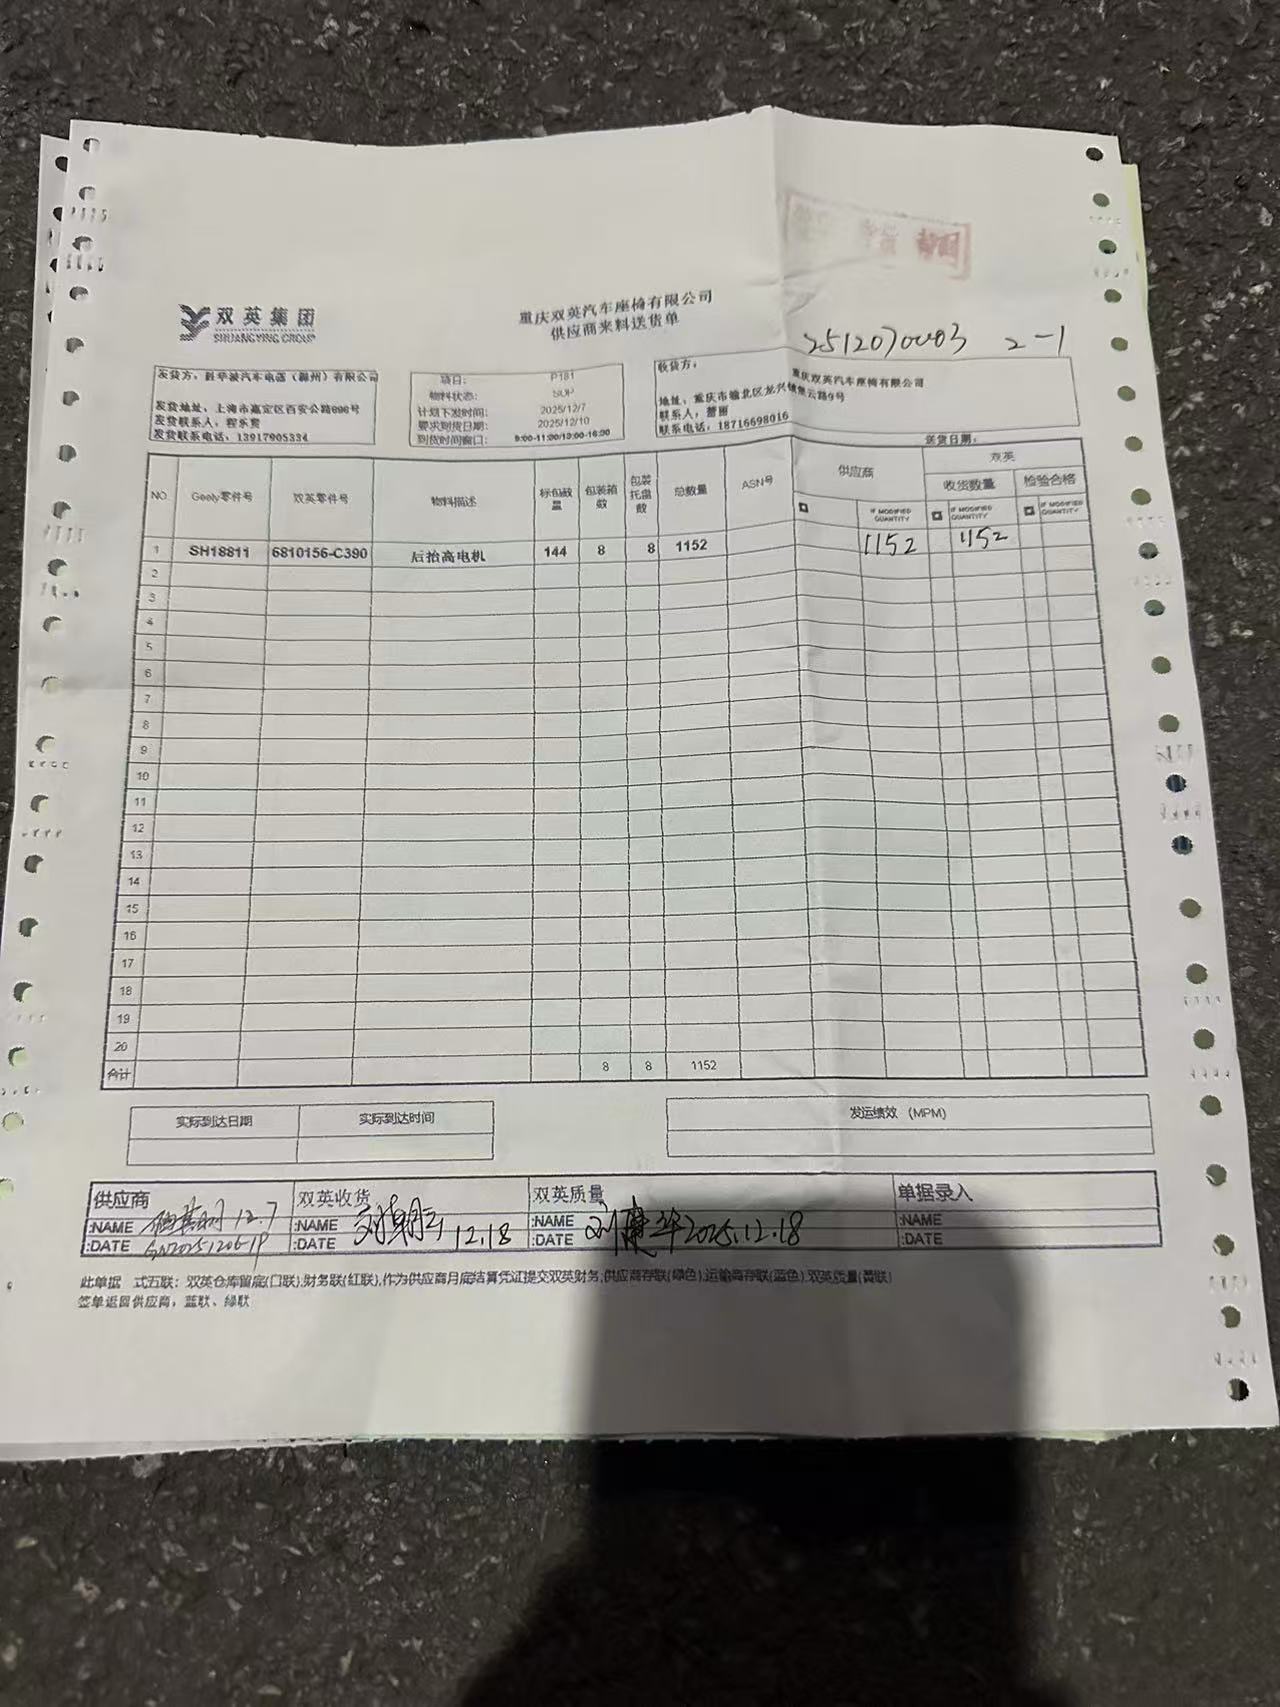 双英集团
SHUANGYING GROUP
重庆双英汽车座椅有限公司
供应商来料送货单
2512070003 2-1
发货方：胜华波汽车电器（滁州）有限公司
发货地址：上海市嘉定区百安公路698号
发货联系人：程乐贵
发货联系电话：13917905334
项目： P181
物料状态： SOP
计划下发时间： 2025/12/7
要求到货日期： 2025/12/10
到货时间窗口： 9:00-11:00/13:00-16:30
收货方： 重庆双英汽车座椅有限公司
地址：重庆市渝北区龙兴镇 云路9号
联系人：
联系电话：18716698016
送货日期：
NO. Geely零件号 双英零件号 物料描述 标包数量 包装箱数 包装托盘数 总数量 ASN号 供应商 双英
收货数量 检验合格
IF MODIFIED QUANTITY IF MODIFIED QUANTITY IF MODIFIED QUANTITY
1 SH18811 6810156-C390 后抬高电机 144 8 8 1152 1152 1152
2
3
4
5
6
7
8
9
10
11
12
13
14
15
16
17
18
19
20
合计 8 8 1152
实际到达日期 实际到达时间
发运绩效 (MPM)
供应商 双英收货 双英质量 单据录入
:NAME 12.7 :NAME 刘朝云 12.18 :NAME 刘建华 2025.12.18 :NAME
:DATE :DATE :DATE :DATE
此单据 式五联：双英仓库留底(门联),财务联(红联),作为供应商月底结算凭证提交双英财务,供应商存联(绿色),运输商存联(蓝色),双英质量(黄联)
签单返回供应商，蓝联、绿联